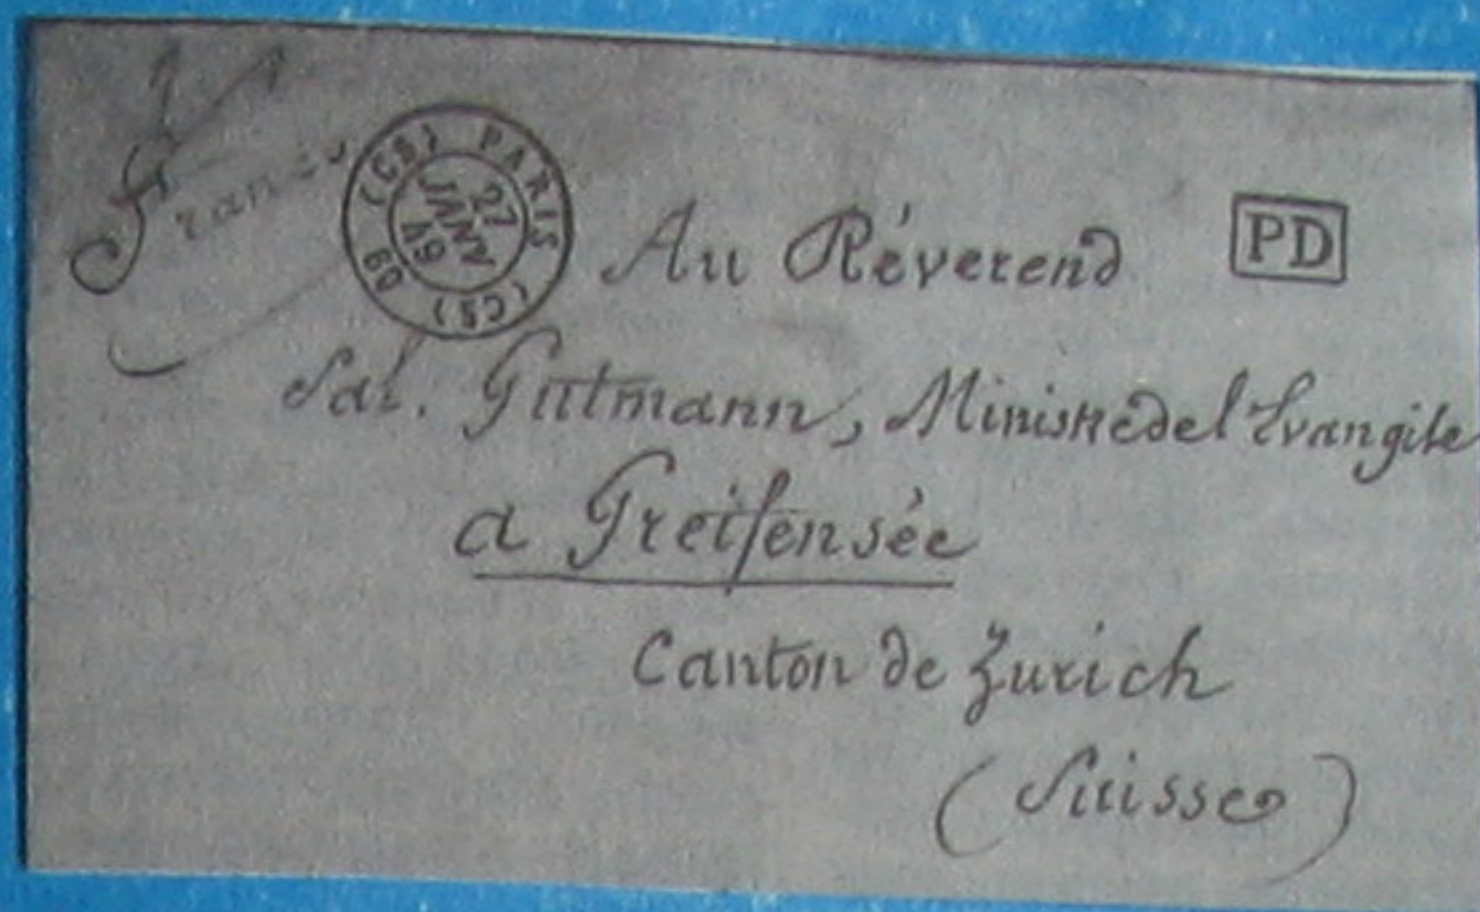 Franco
PARIS (CS)
(CS) 60
27
JANV
49
PD
Au Réverend
Sal. Gutmann, Ministre de l Evangile
a Greifensée
Canton de Zurich
(Suisse)